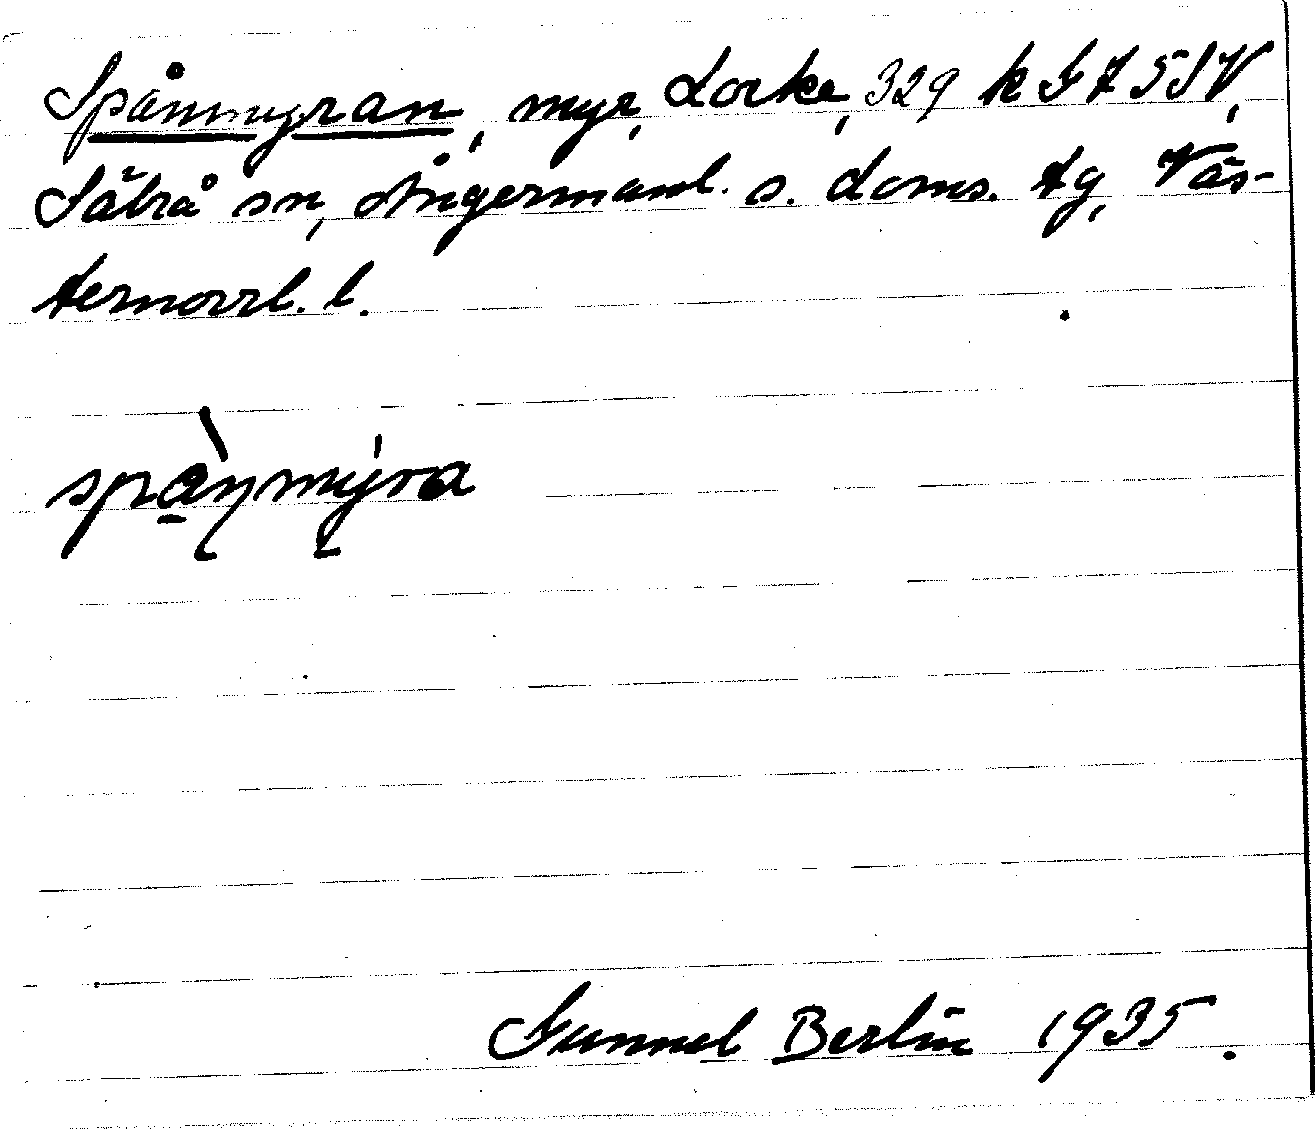 Spånmyran, myr, Lorke, 329 k GA 5 SV,
Säbrå sn, Ångermanl. s. doms. tg, Väs-
ternorrl. l.
spånmýra
Gunnel Berlin 1935.